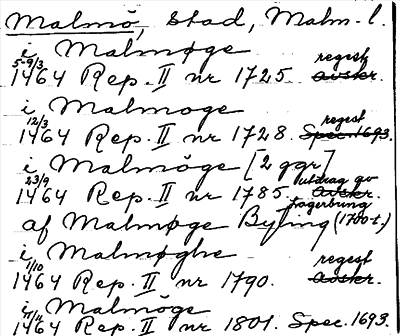 Malmö, stad, Malm-l.
i Malmøge
5-9/3 regest
1464 Rep. II nr 1725. avskr.
i Malmoge
12/3 regest
1464 Rep. II nr 1728. Spec. 1693.
i Malmöge [2 ggr]
23/9 utdrag av
1464 Rep. II nr 1785. avskr.
Lagerbring
af Malmøge Byting (1700-t.)
i Malmøghe
1/10 regest
1464 Rep. II nr 1790. avskr.
i Malmöge
1464 Rep. II nr 1801. Spec. 1693.